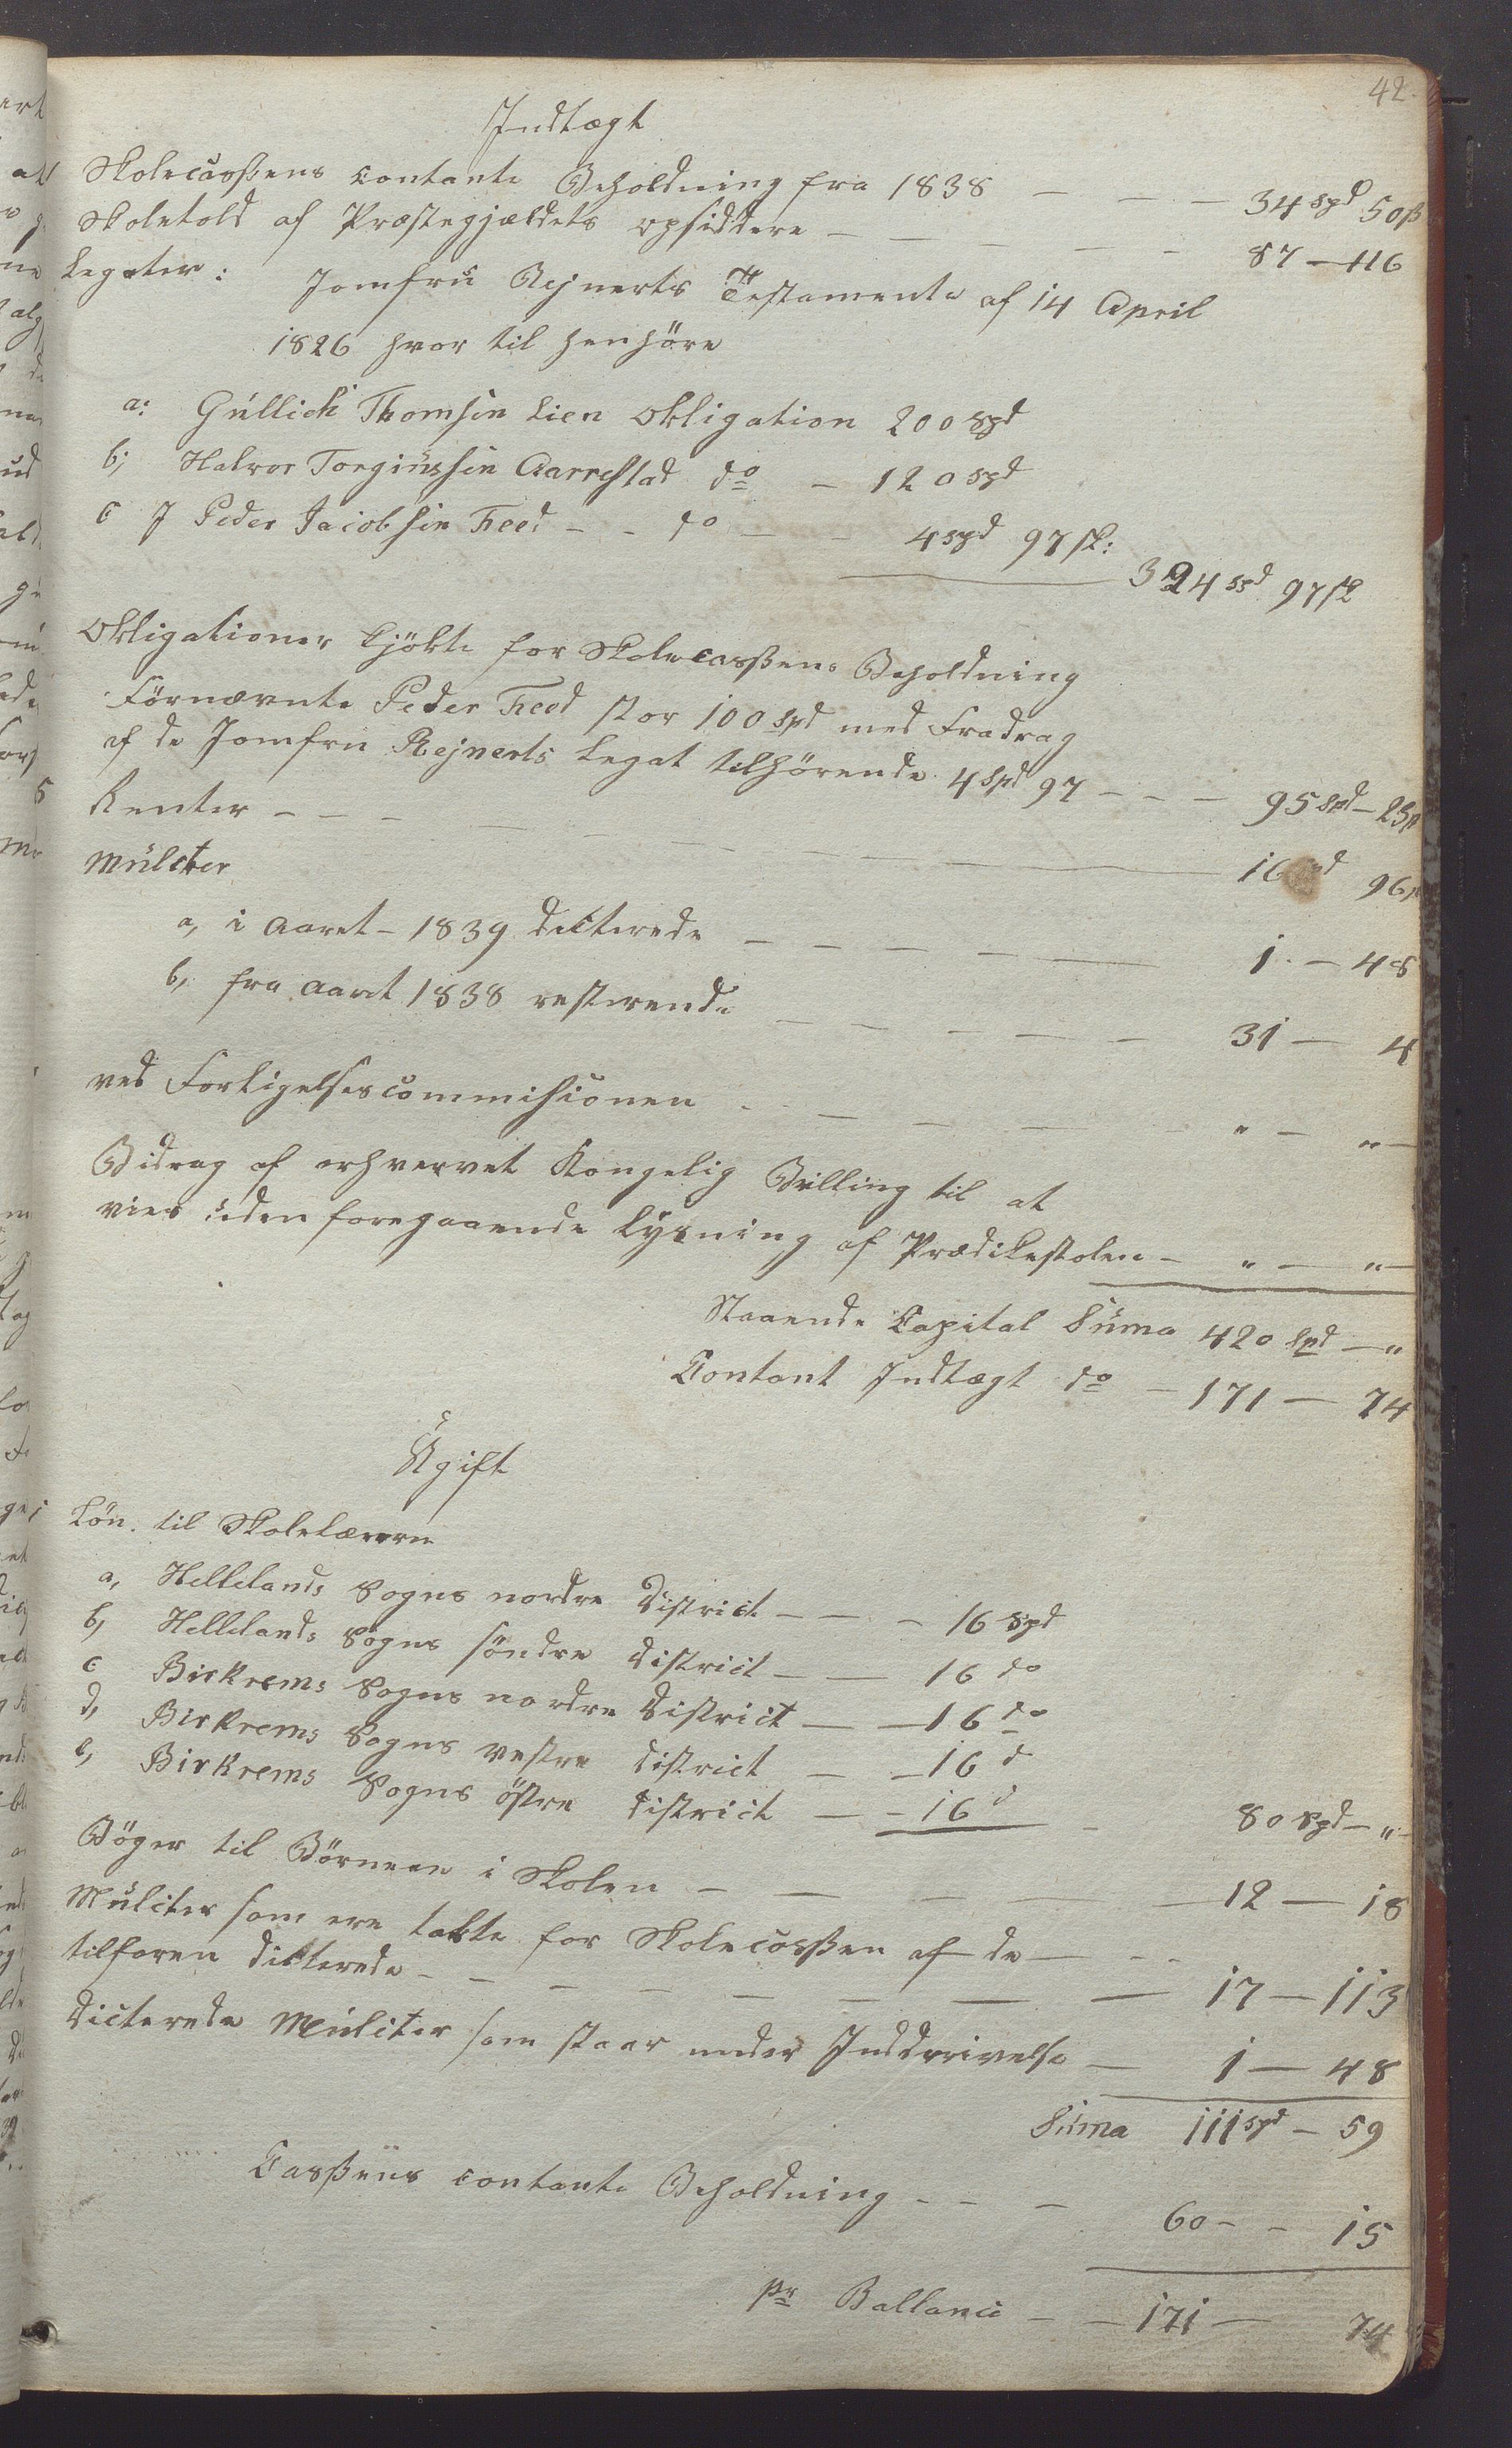 42.
Indtægt
Skolecassens contante Beholdning fra 1838 — — — 34 spd 50 ß
Skoletold af Præstegjeldets opsiddere — — — — — 87 — 116
Legater: Jomfru Rejnerts Testamente af 14 April
1826 hvor til henhöre
a: Gullich Thomsen Lien Obligation 200 Spd
b; Halvor Torginssen Aarrestad do — 120 spd
c J Peder Jacobsen Feed — — do — — 4 spd 97 sk:
324 spd 97 sk
Obligationer kjöbte for Skolecassens Beholdning
Förnævnte Peder Feed stor 100 Spd med Fradrag
af de Jomfru Rejnerts Legat tilhörende 4 Spd 97 — — — 95 Spd — 23 ß
Renter — — — — — — — 16 spd 96
Mulcter
a, i Aaret — 1839 dicterede — — — — — 1 — 48
b, fra Aaret 1838 resterende — — — — — 31 — 4
ved Forligelsescommissionen — — — — " — "
Bidrag af erhvervet Kongelig Billing til at
vies uden foregaaende Lysning af Prædikestolen — " — "
Staaende Capital Suma 420 Spd — "
Contant Indtægt do — 171 — 74
Ugift
Lön til Skolelærere
a, Hellelands Sogns nordre District — — — 16 Spd
b, Hellelands Sogns söndre District — — 16 do
c Birkrems Sogns nordre District — — 16 do
d, Birkrems Sogns vestre District — — 16 d
e, Birkrems Sogns östre District — — 16 d — 80 Spd — "
Böger til Börnene i Skolen — — — — — 12 — 18
Mulcter som ere tabte for Skolecassen af de — — —
tilforn dicterede — — — — — — — — 17 — 113
Dicterede Mulcter som staar under Inddrivelse — 1 — 48
Suma 111 spd — 59
Cassens contante Beholdning — — — 60 — — 15
pr Ballance — — 171 — 74